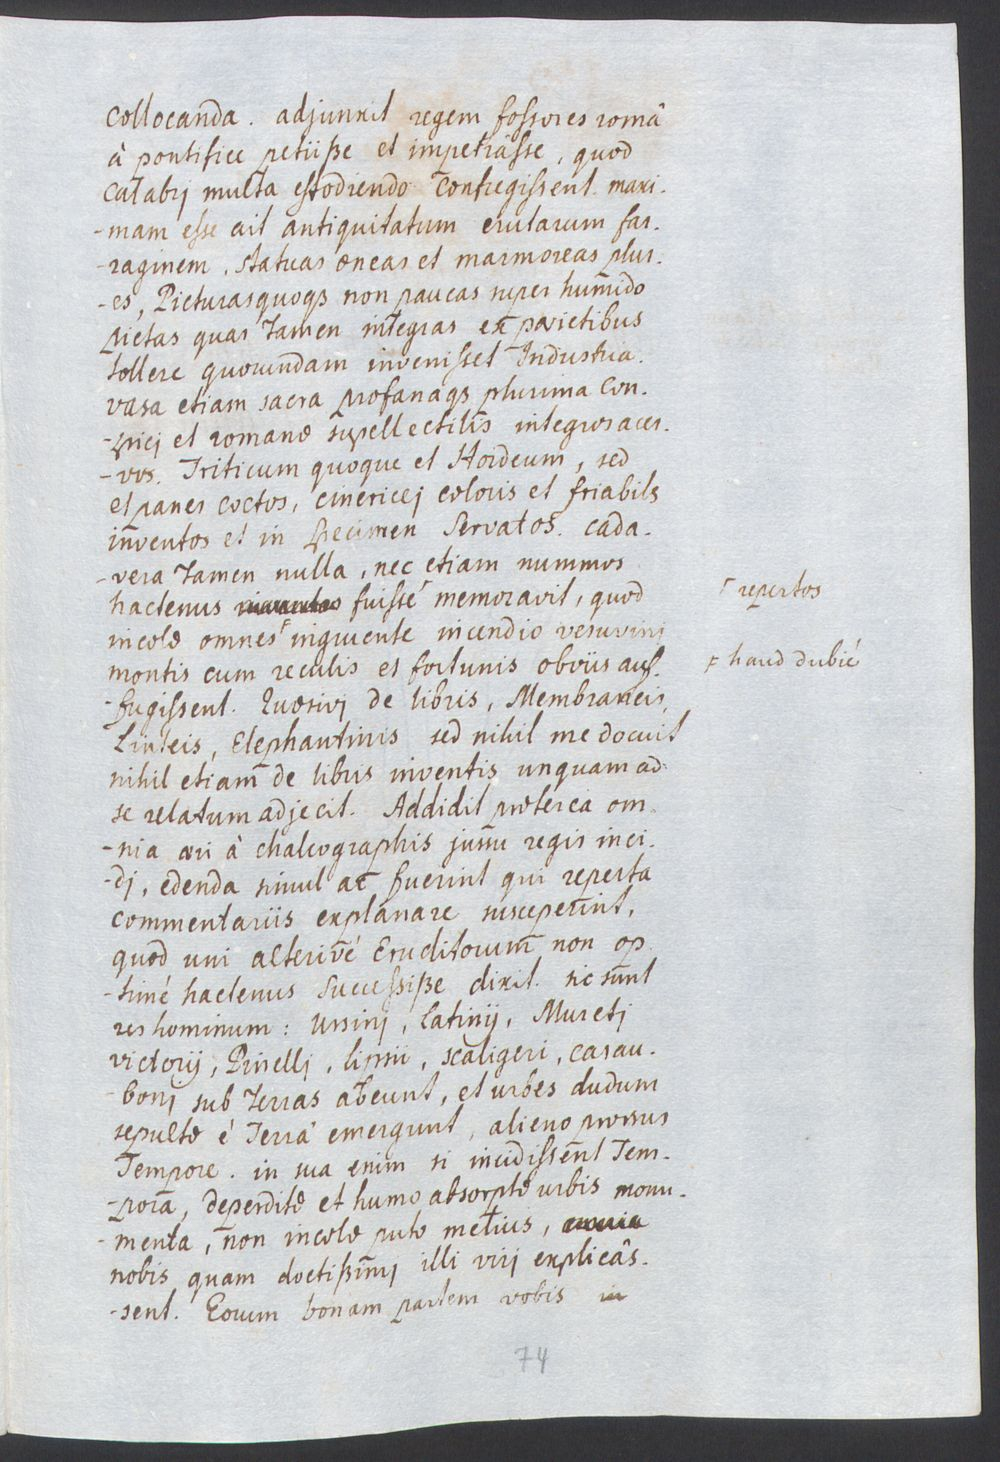 collocanda. adjunxit regem fossores româ
à pontifice petiiße et impetrasse, quod
calabrj multa effodiendo confregissent. maxi-
-mam esse ait antiquitatum erutarum far-
-raginem, statuas æneas et marmoreas plur-
-es, Picturas quoqs non paucas super humido
pictas quas tamen integras ex parietibus
tollere quorumdam invenisset Industria.
vasa etiam sacra profanaqs plurima con-
-spicj et romanæ supellectilis integros acer-
-vos. Triticum quoque et Hordeum, sed
et panes coctos, cinericej coloris et friabiles
inventos et in specimen servatos. cada-
-vera tamen nulla, nec etiam nummos
hactenus inventos fuisse memoravit, quod
⌜repertos
incolæ omnes⌜ ingruente incendio vesuvini
montis cum reculis et fortunis obvijs auf-
⌜haud dubié
-fugissent. Quæsivj de libris, Membraneis,
Linteis, Elephantinis sed nihil me docuit
nihil etiam de libris inventis unquam ad
se relatum adjecit. Addidit præterea om-
-nia æri à chalcographis jussu regis inci-
-dj, edenda simul ac fuerint qui reperta
commentariis explanare susceperint,
quod uni alterivé Eruditorum non op-
-timé hactenus successiße dixit. sic sunt
res hominum: Ursinj, Latinij, Muretj
victorij, Pinellj, lipsii, scaligeri, casau-
-bonj sub terras abeunt, et urbes dudum
sepultæ é Terrâ emergunt, alieno prorsus
Tempore. in sua enim si incidissent Tem-
-pora, deperditæ et humo absorptæ urbis monu-
-menta, non incolæ puto melius, omnia
nobis quam doctißimj illi virj explicâs-
-sent. Eorum bonam partem vobis in
74